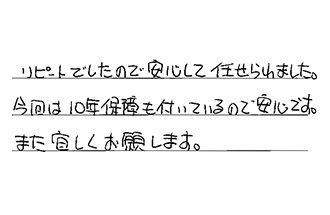 リピートでしたので安心して任せられました。
今回は10年保障も付いているので安心です。
また宜しくお願します。